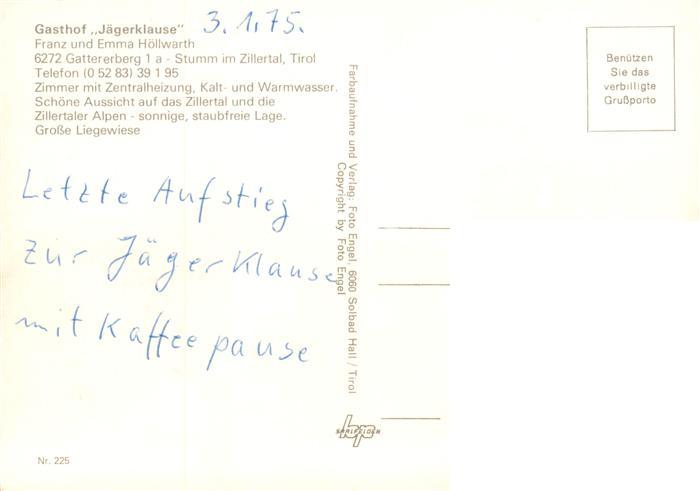 Gasthof „Jägerklause"
3.1.75.
Franz und Emma Höllwarth
6272 Gattererberg 1 a - Stumm im Zillertal, Tirol
Telefon (0 52 83) 39 1 95
Zimmer mit Zentralheizung, Kalt- und Warmwasser.
Schöne Aussicht auf das Zillertal und die
Zillertaler Alpen - sonnige, staubfreie Lage.
Große Liegewiese
Benützen
Sie das
verbilligte
Grußporto
Letzte Aufstieg
zur Jägerklause
mit Kaffeepause
Farbaufnahme und Verlag: Foto Engel, 6060 Solbad Hall / Tirol
Copyright by Foto Engel
SAALFELDEN
Nr. 225